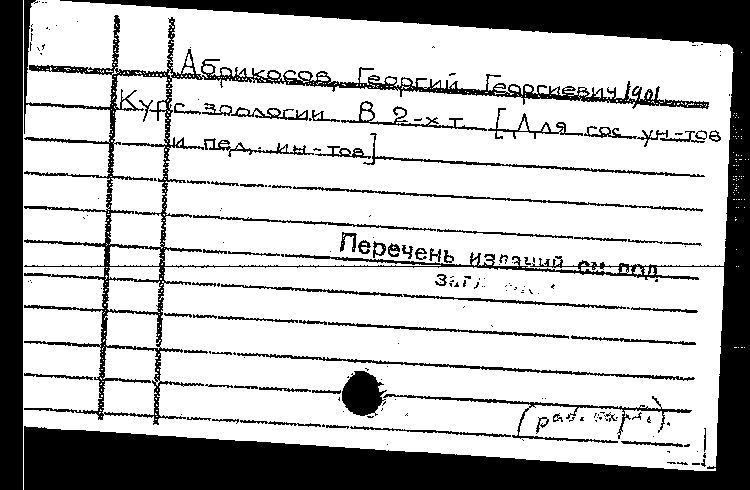 Абрикосов, Георгий Георгиевич 1901
Курс зоологии В 2-х т. [Для гос ун-тов
и пед. ин-тов]
Перечень изданий см. под
(раб. карт.).